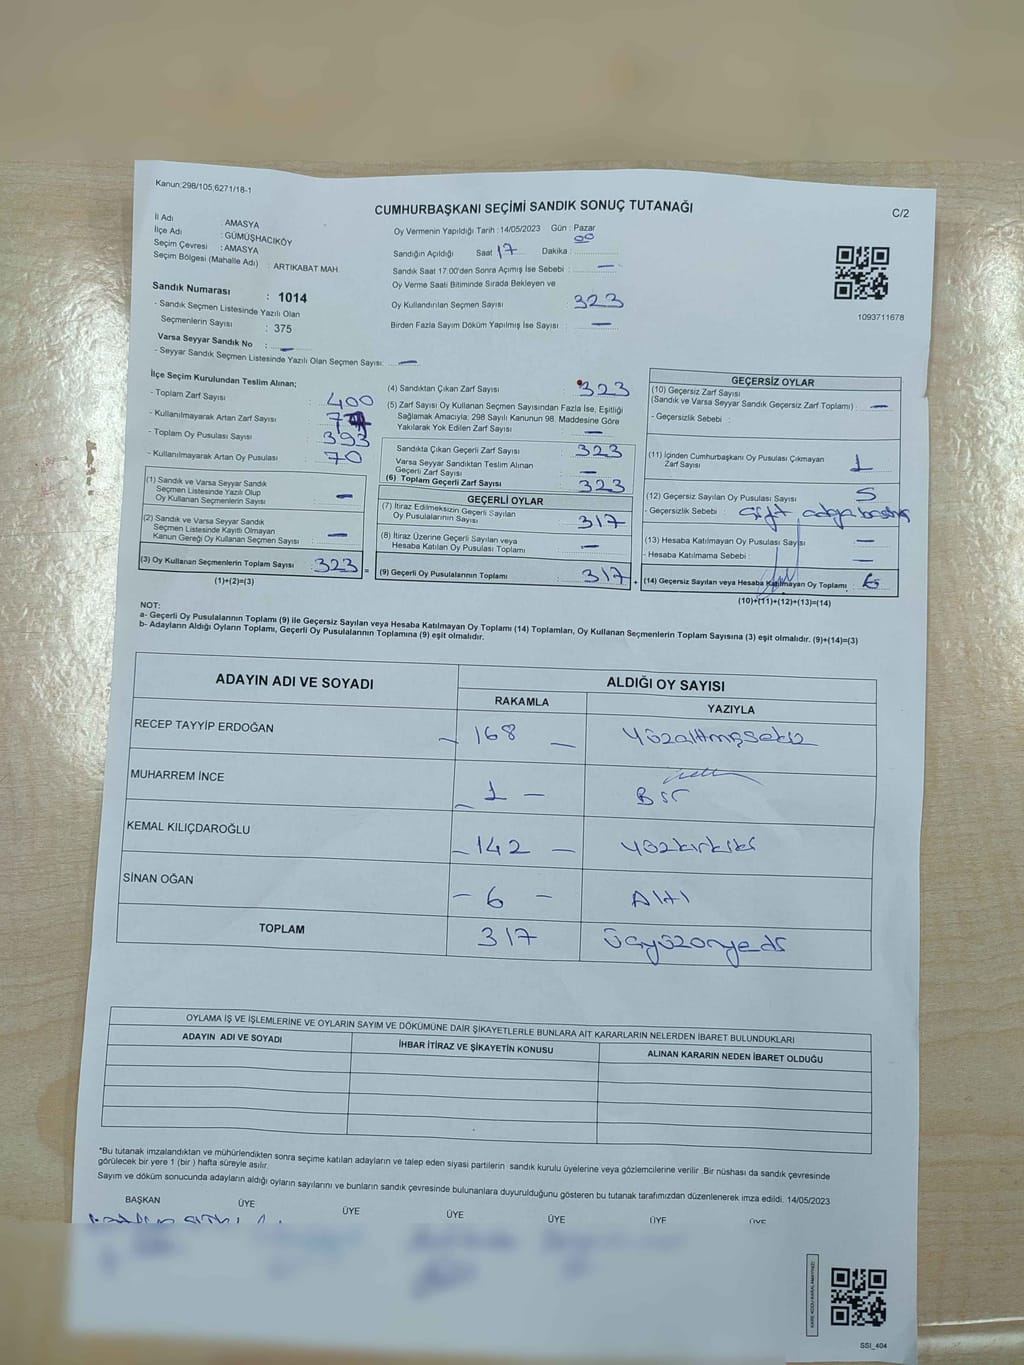 Kanun,298/105,6271/18-1
CUMHURBAŞKANI SEÇİMİ SANDIK SONUÇ TUTANAĞI
C/2
İl Adı : AMASYA
İlçe Adı : GÜMÜŞHACIKÖY
Seçim Çevresi : AMASYA
Seçim Bölgesi (Mahalle Adı) : ARTIKABAT MAH.
Sandık Numarası : 1014
- Sandık Seçmen Listesinde Yazılı Olan
Seçmenlerin Sayısı : 375
Varsa Seyyar Sandık No : —
- Seyyar Sandık Seçmen Listesinde Yazılı Olan Seçmen Sayısı: —
Oy Vermenin Yapıldığı Tarih : 14/05/2023 Gün : Pazar
Sandığın Açıldığı Saat 17 Dakika : 00
Sandık Saat 17:00'den Sonra Açımış İse Sebebi : —
Oy Verme Saati Bitiminde Sırada Bekleyen ve
Oy Kullandırılan Seçmen Sayısı : 323
Birden Fazla Sayım Döküm Yapılmış İse Sayısı : —
1093711678
İlçe Seçim Kurulundan Teslim Alınan;
- Toplam Zarf Sayısı : 400
- Kullanılmayarak Artan Zarf Sayısı : 77
- Toplam Oy Pusulası Sayısı : 393
- Kullanılmayarak Artan Oy Pusulası : 70
(1) Sandık ve Varsa Seyyar Sandık
Seçmen Listesinde Yazılı Olup
Oy Kullanan Seçmenlerin Sayısı : —
(2) Sandık ve Varsa Seyyar Sandık
Seçmen Listesinde Kayıtlı Olmayan
Kanun Gereği Oy Kullanan Seçmen Sayısı : —
(3) Oy Kullanan Seçmenlerin Toplam Sayısı : 323 =
(1)+(2)=(3)
(4) Sandıktan Çıkan Zarf Sayısı : 323
(5) Zarf Sayısı Oy Kullanan Seçmen Sayısından Fazla İse, Eşitliği
Sağlamak Amacıyla; 298 Sayılı Kanunun 98. Maddesine Göre
Yakılarak Yok Edilen Zarf Sayısı : —
Sandıkta Çıkan Geçerli Zarf Sayısı : 323
Varsa Seyyar Sandıktan Teslim Alınan
Geçerli Zarf Sayısı : —
(6) Toplam Geçerli Zarf Sayısı : 323
GEÇERLİ OYLAR
(7) İtiraz Edilmeksizin Geçerli Sayılan
Oy Pusulalarının Sayısı : 317
(8) İtiraz Üzerine Geçerli Sayılan veya
Hesaba Katılan Oy Pusulası Toplamı : —
(9) Geçerli Oy Pusulalarının Toplamı : 317 +
GEÇERSİZ OYLAR
(10) Geçersiz Zarf Sayısı
(Sandık ve Varsa Seyyar Sandık Geçersiz Zarf Toplamı) : —
- Geçersizlik Sebebi :
(11) İçinden Cumhurbaşkanı Oy Pusulası Çıkmayan
Zarf Sayısı : 1
(12) Geçersiz Sayılan Oy Pusulası Sayısı : 5
- Geçersizlik Sebebi : çift adya
(13) Hesaba Katılmayan Oy Pusulası Sayısı : —
- Hesaba Katılmama Sebebi : —
(14) Geçersiz Sayılan veya Hesaba Katılmayan Oy Toplamı : 6
(10)+(11)+(12)+(13)=(14)
NOT:
a- Geçerli Oy Pusulalarının Toplamı (9) ile Geçersiz Sayılan veya Hesaba Katılmayan Oy Toplamı (14) Toplamları, Oy Kullanan Seçmenlerin Toplam Sayısına (3) eşit olmalıdır. (9)+(14)=(3)
b- Adayların Aldığı Oyların Toplamı, Geçerli Oy Pusulalarının Toplamına (9) eşit olmalıdır.
ADAYIN ADI VE SOYADI ALDIĞI OY SAYISI
RAKAMLA YAZIYLA
RECEP TAYYİP ERDOĞAN — 168 — Yüzaltmışsekiz
MUHARREM İNCE — 1 — Bir
KEMAL KILIÇDAROĞLU — 142 — Yüzkırkiki
SİNAN OĞAN — 6 — Altı
TOPLAM 317 Üçyüzonyedi
OYLAMA İŞ VE İŞLEMLERİNE VE OYLARIN SAYIM VE DÖKÜMÜNE DAİR ŞİKAYETLERLE BUNLARA AİT KARARLARIN NELERDEN İBARET BULUNDUKLARI
ADAYIN ADI VE SOYADI İHBAR İTİRAZ VE ŞİKAYETİN KONUSU ALINAN KARARIN NEDEN İBARET OLDUĞU
*Bu tutanak imzalandıktan ve mühürlendikten sonra seçime katılan adayların ve talep eden siyasi partilerin sandık kurulu üyelerine veya gözlemcilerine verilir. Bir nüshası da sandık çevresinde
görülecek bir yere 1 (bir) hafta süreyle asılır.
Sayım ve döküm sonucunda adayların aldığı oyların sayılarını ve bunların sandık çevresinde bulunanlara duyurulduğunu gösteren bu tutanak tarafımızdan düzenlenerek imza edildi. 14/05/2023
BAŞKAN ÜYE ÜYE ÜYE ÜYE ÜYE ÜYE
SSI_404